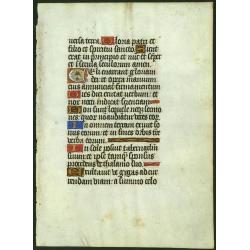 uersa terra. Gloria patri et
filio et spiritui sancto. Sicut
erat in principio et nunc et semper
et in secula seculorum amen.
Celi enarrant gloriam
dei: et opera manuum
eius annunciat firmamentum.
Dies diei eructat uerbum: et
nox nocti indicat scientiam.
Non sunt loquele neque sermo
nes: quorum non audiantur uoces eorum.
In omnem terram exiuit so
nus eorum: et in fines orbis ter
re uerba eorum.
In sole posuit tabernaculum
suum: et ipse tamquam sponsus
procedens de thalamo suo.
Exultauit ut gigas ad cur
rendam uiam: a summo celo